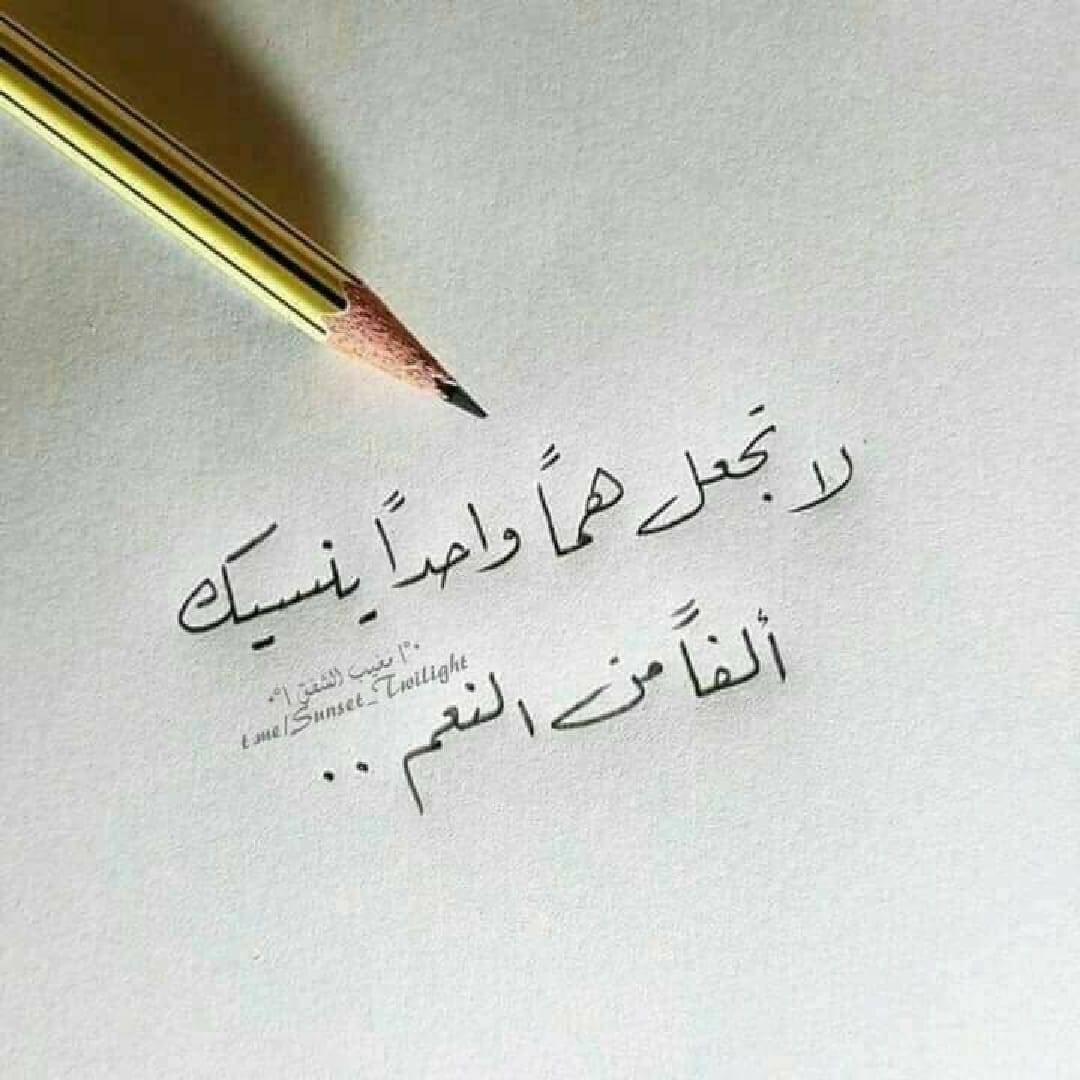 لا تجعل هماً واحداً ينسيك
ألفاً من النعم ..
مغيب الشفق
t.me/Sunset_Twilight